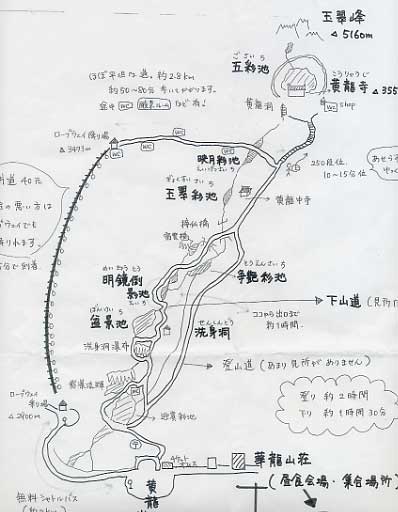 玉翠峰
△5160m
ごさいち
五彩池
こうりゅうじ
黄龍寺
△355
黄龍洞
WC
shop
ほぼ平坦な道。約2.8km
約50〜80分 歩いてかかります。
途中 WC 酸素ルーム など有!
ロープウェイ降り場
△3473m
WC
WC
WC
映月彩池
えいげつさいち
250段位、
10〜15分位
ぎょくすいさいち
玉翠彩池
黄龍中寺
接仙橋
争艶彩池
めいきょうとう
明鏡倒
影池
えいち
ぼんけいち
盆景池
せんしんどう
洗身洞
洗身洞瀑布
下山道
ココから出口まで
約1時間。
登山道 (あまり見所がありません)
登り 約2時間
下り 約1時間30分
迎賓彩池
WC
ロープウェイ
乗り場
△2400m
チケット
華龍山荘
(昼食会場・集合場所)
黄
龍
無料シャトルバス
道 40元
の悪い方は
プウェイでも
降りれます。
分で到着